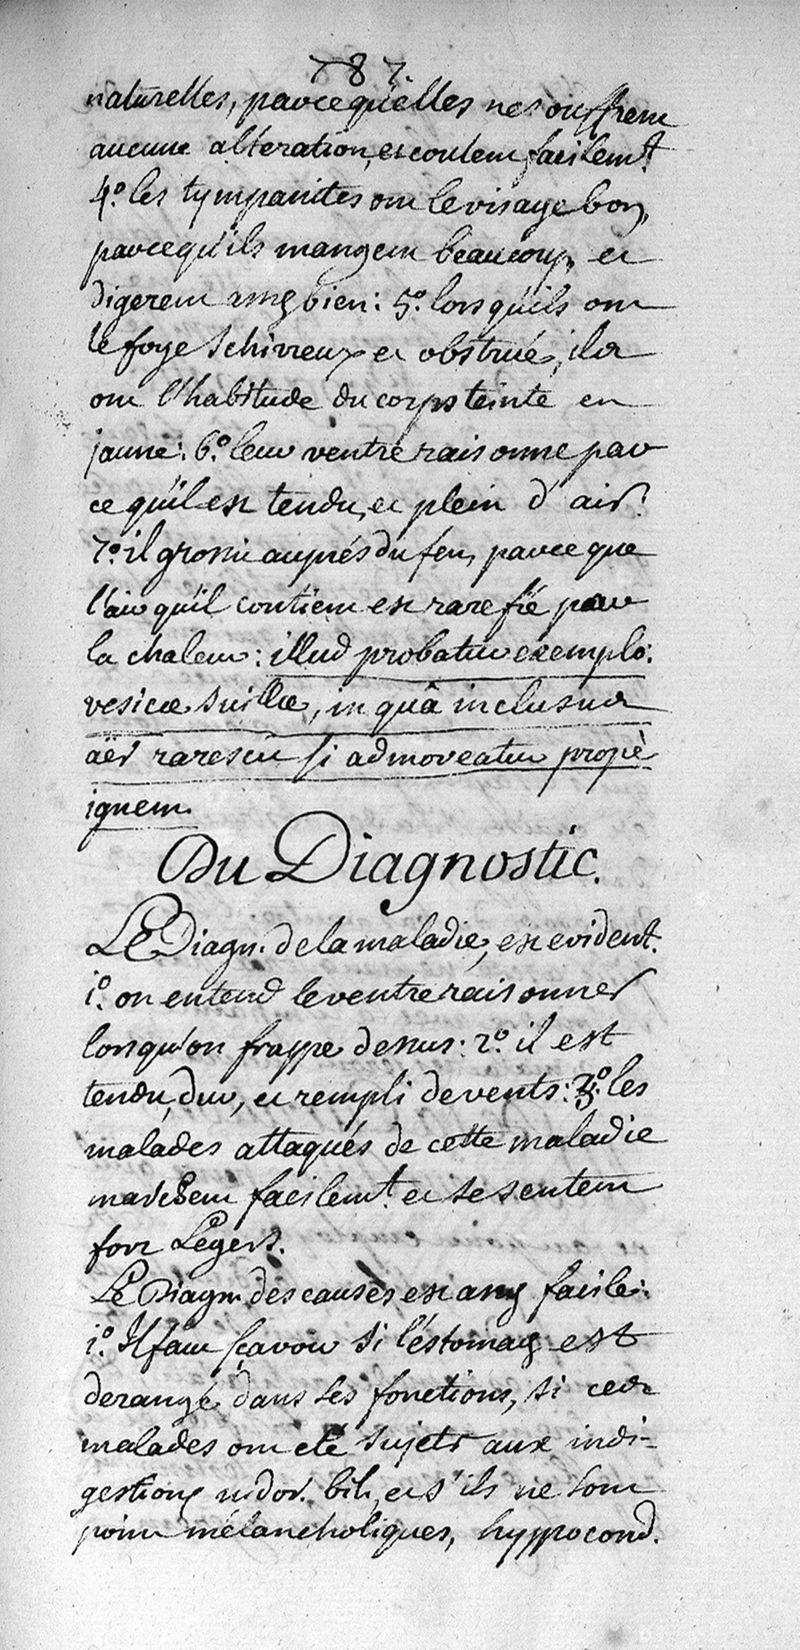 787
naturelles, parcequ'elles ne souffrent
aucune alteration, et coulent facilemt.
4.º les tympanites ont le visage bon,
parcequ'ils mangent beaucoup, et
digerent assez bien: 5.º lorsqu'ils ont
le foye schirreux et obstrué, ils
ont l'habitude du corps teinte en
jaune: 6.º leur ventre raisonne par
ce qu'il est tendu, et plein d'air:
7.º il grossit auprés du feu, parce que
l'air qu'il contient est rarefié par
la chaleur: illud probatur exemplo:
vesicæ suillæ, in quâ inclusus
aër rarescit si admoveatur propè
ignem.
Du Diagnostic.
Le Diagn. de la maladie, est evident.
1.º on entend le ventre raisonner
lorsqu'on frappe dessus: 2.º il est
tendu, dur, et rempli de vents: 3.º les
malades attaqués de cette maladie
marchent facilemt. et se sentent
fort Légers.
Le Diagn. des causes est assez facile:
1.º Il faut sçavoir si l'éstomac est
derangé dans ses fonctions, si ces
malades ont eté sujets aux indi-
gestions nidor. bili, et s'ils ne sont
point mélancholiques, hyppocond.